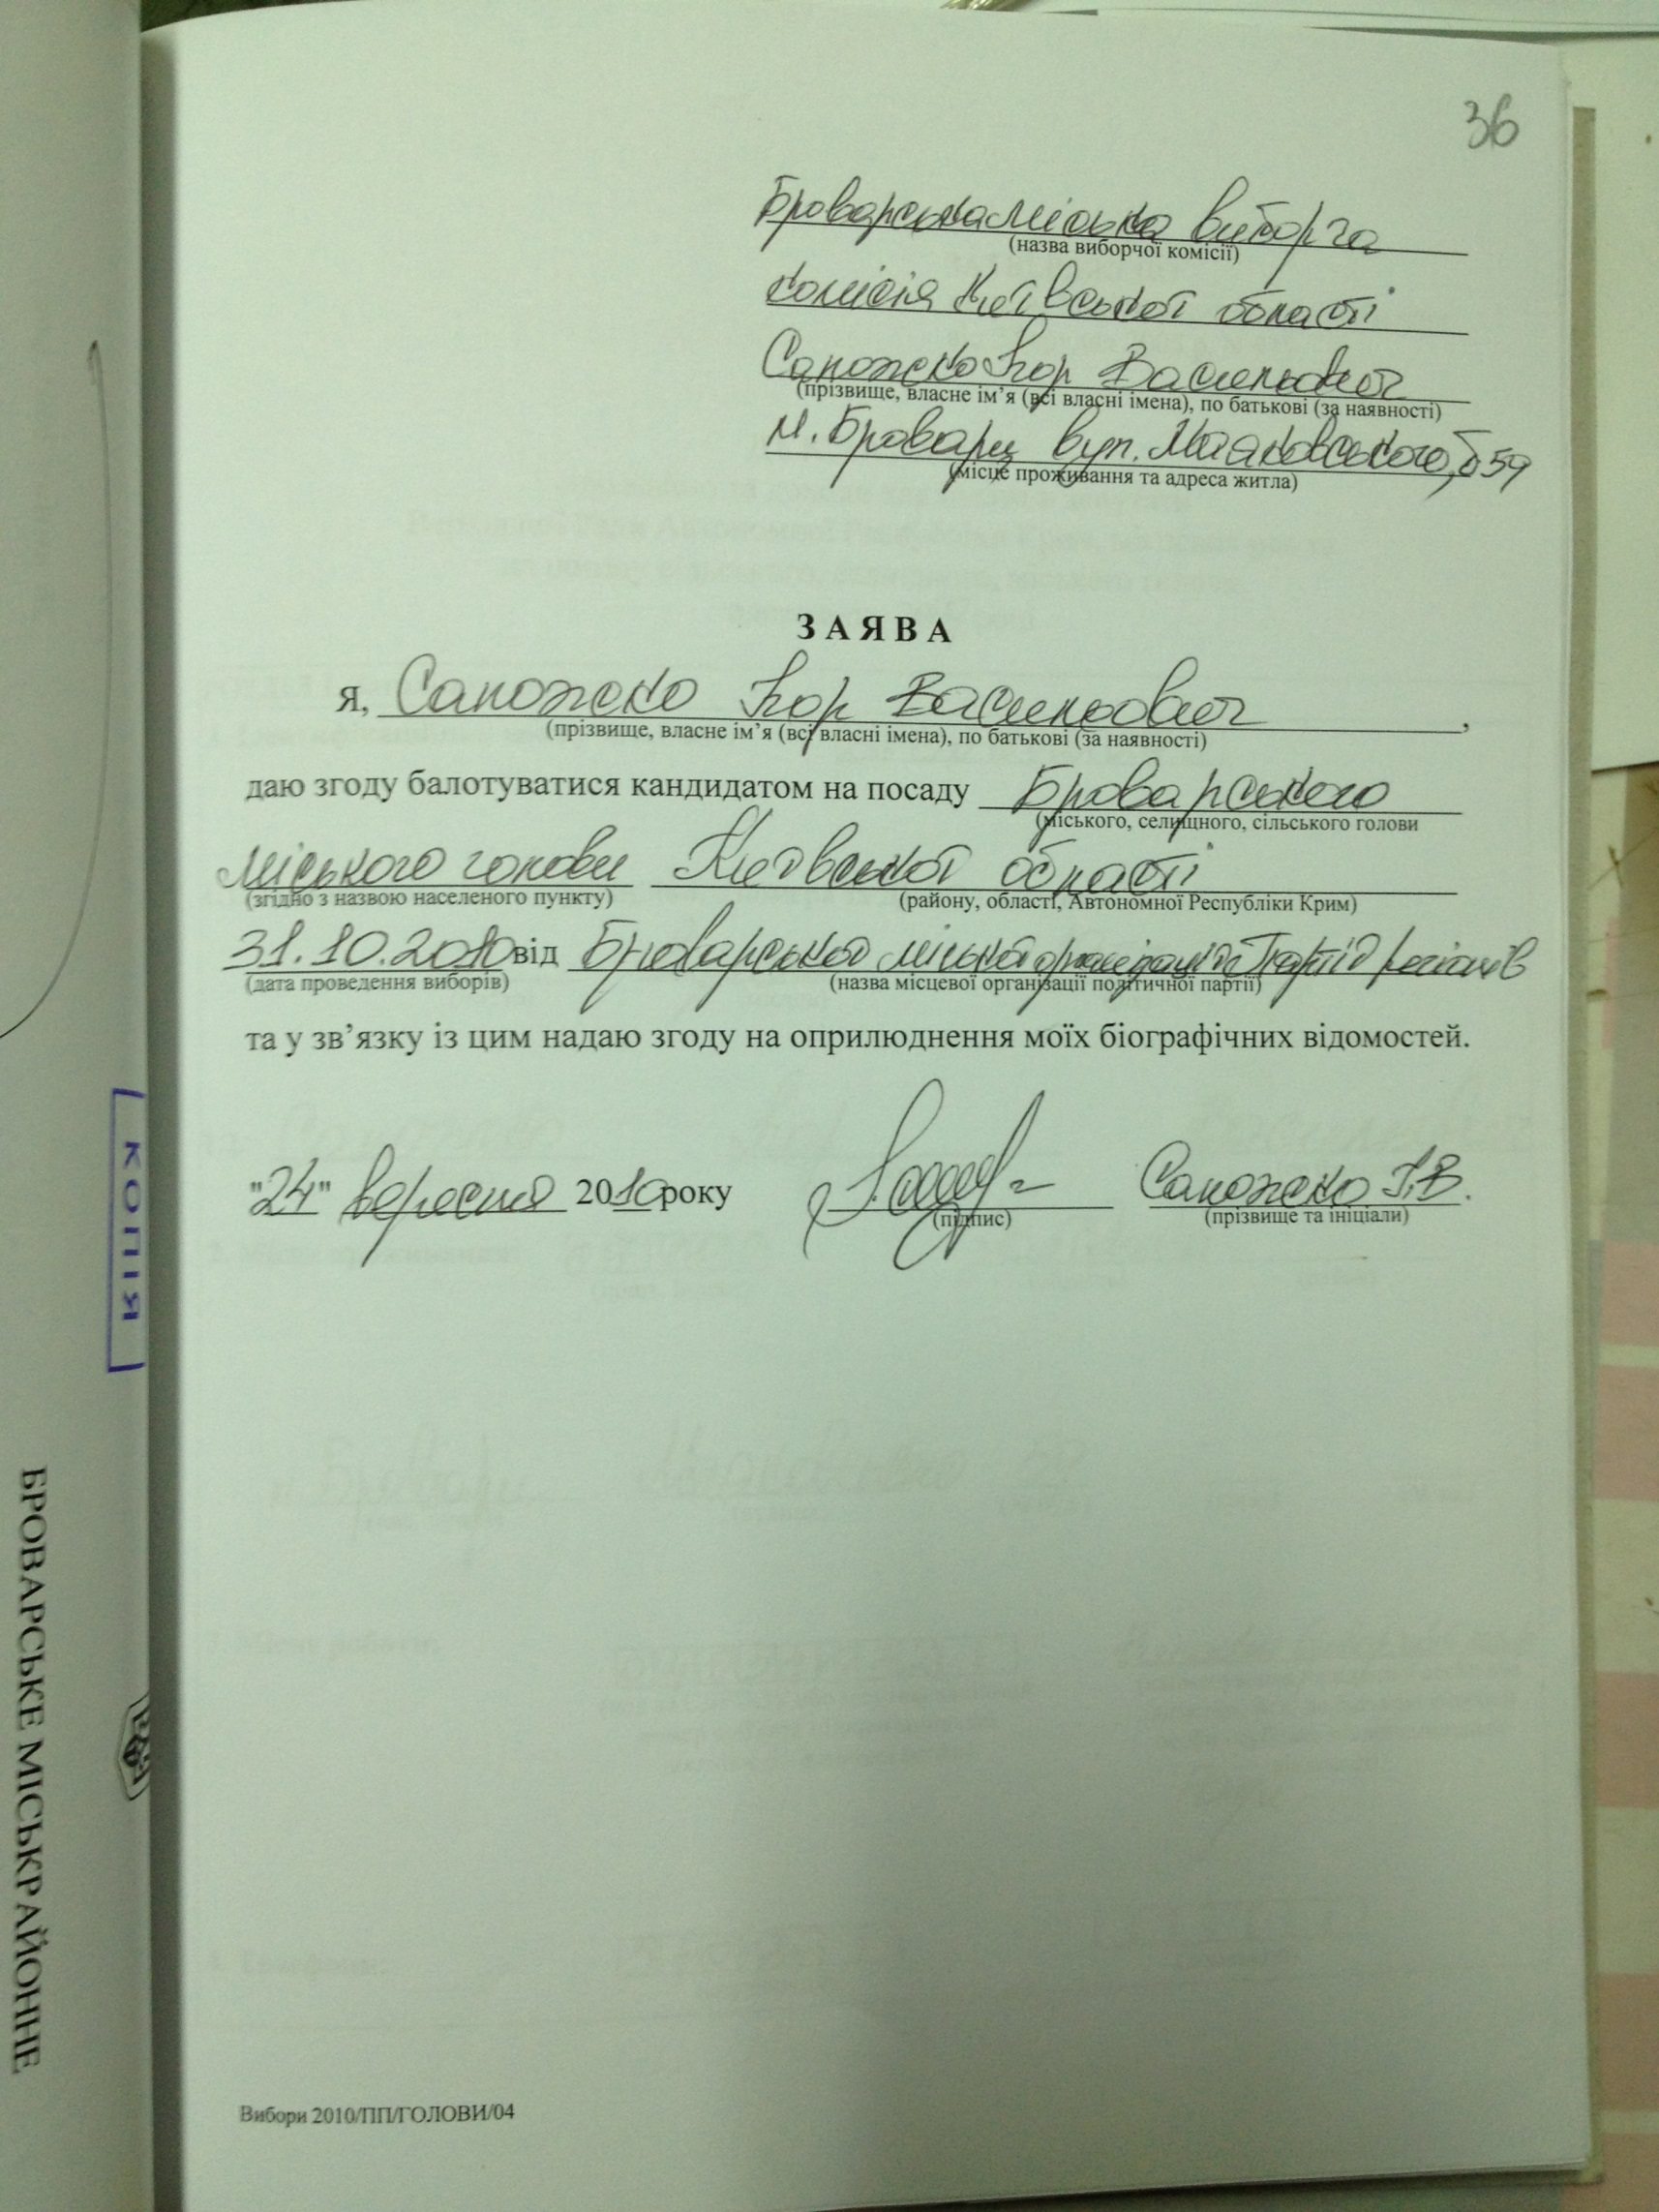 36
Броварська міська виборча
(назва виборчої комісії)
комісія Київської області
Сапожко Ігор Васильович
(прізвище, власне ім’я (всі власні імена), по батькові (за наявності)
м. Бровари вул. Маяковського, б 59
(місце проживання та адреса житла)
ЗАЯВА
Я, Сапожко Ігор Васильович,
(прізвище, власне ім’я (всі власні імена), по батькові (за наявності)
даю згоду балотуватися кандидатом на посаду Броварського
(міського, селищного, сільського голови
міського голови Київської області
(згідно з назвою населеного пункту) (району, області, Автономної Республіки Крим)
31.10.2010 від Броварської міської організації Партії регіонів
(дата проведення виборів) (назва місцевої організації політичної партії)
та у зв’язку із цим надаю згоду на оприлюднення моїх біографічних відомостей.
"24" вересня 2010 року Сапожко І.В.
(підпис) (прізвище та ініціали)
Вибори 2010/ПП/ГОЛОВИ/04
КОПІЯ
БРОВАРСЬКЕ МІСЬКРАЙОННЕ